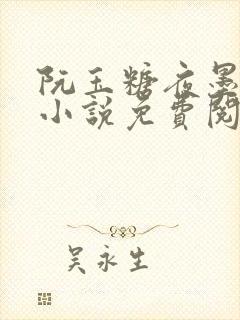 阮玉糖夜墨
小說免費閱
吴永生